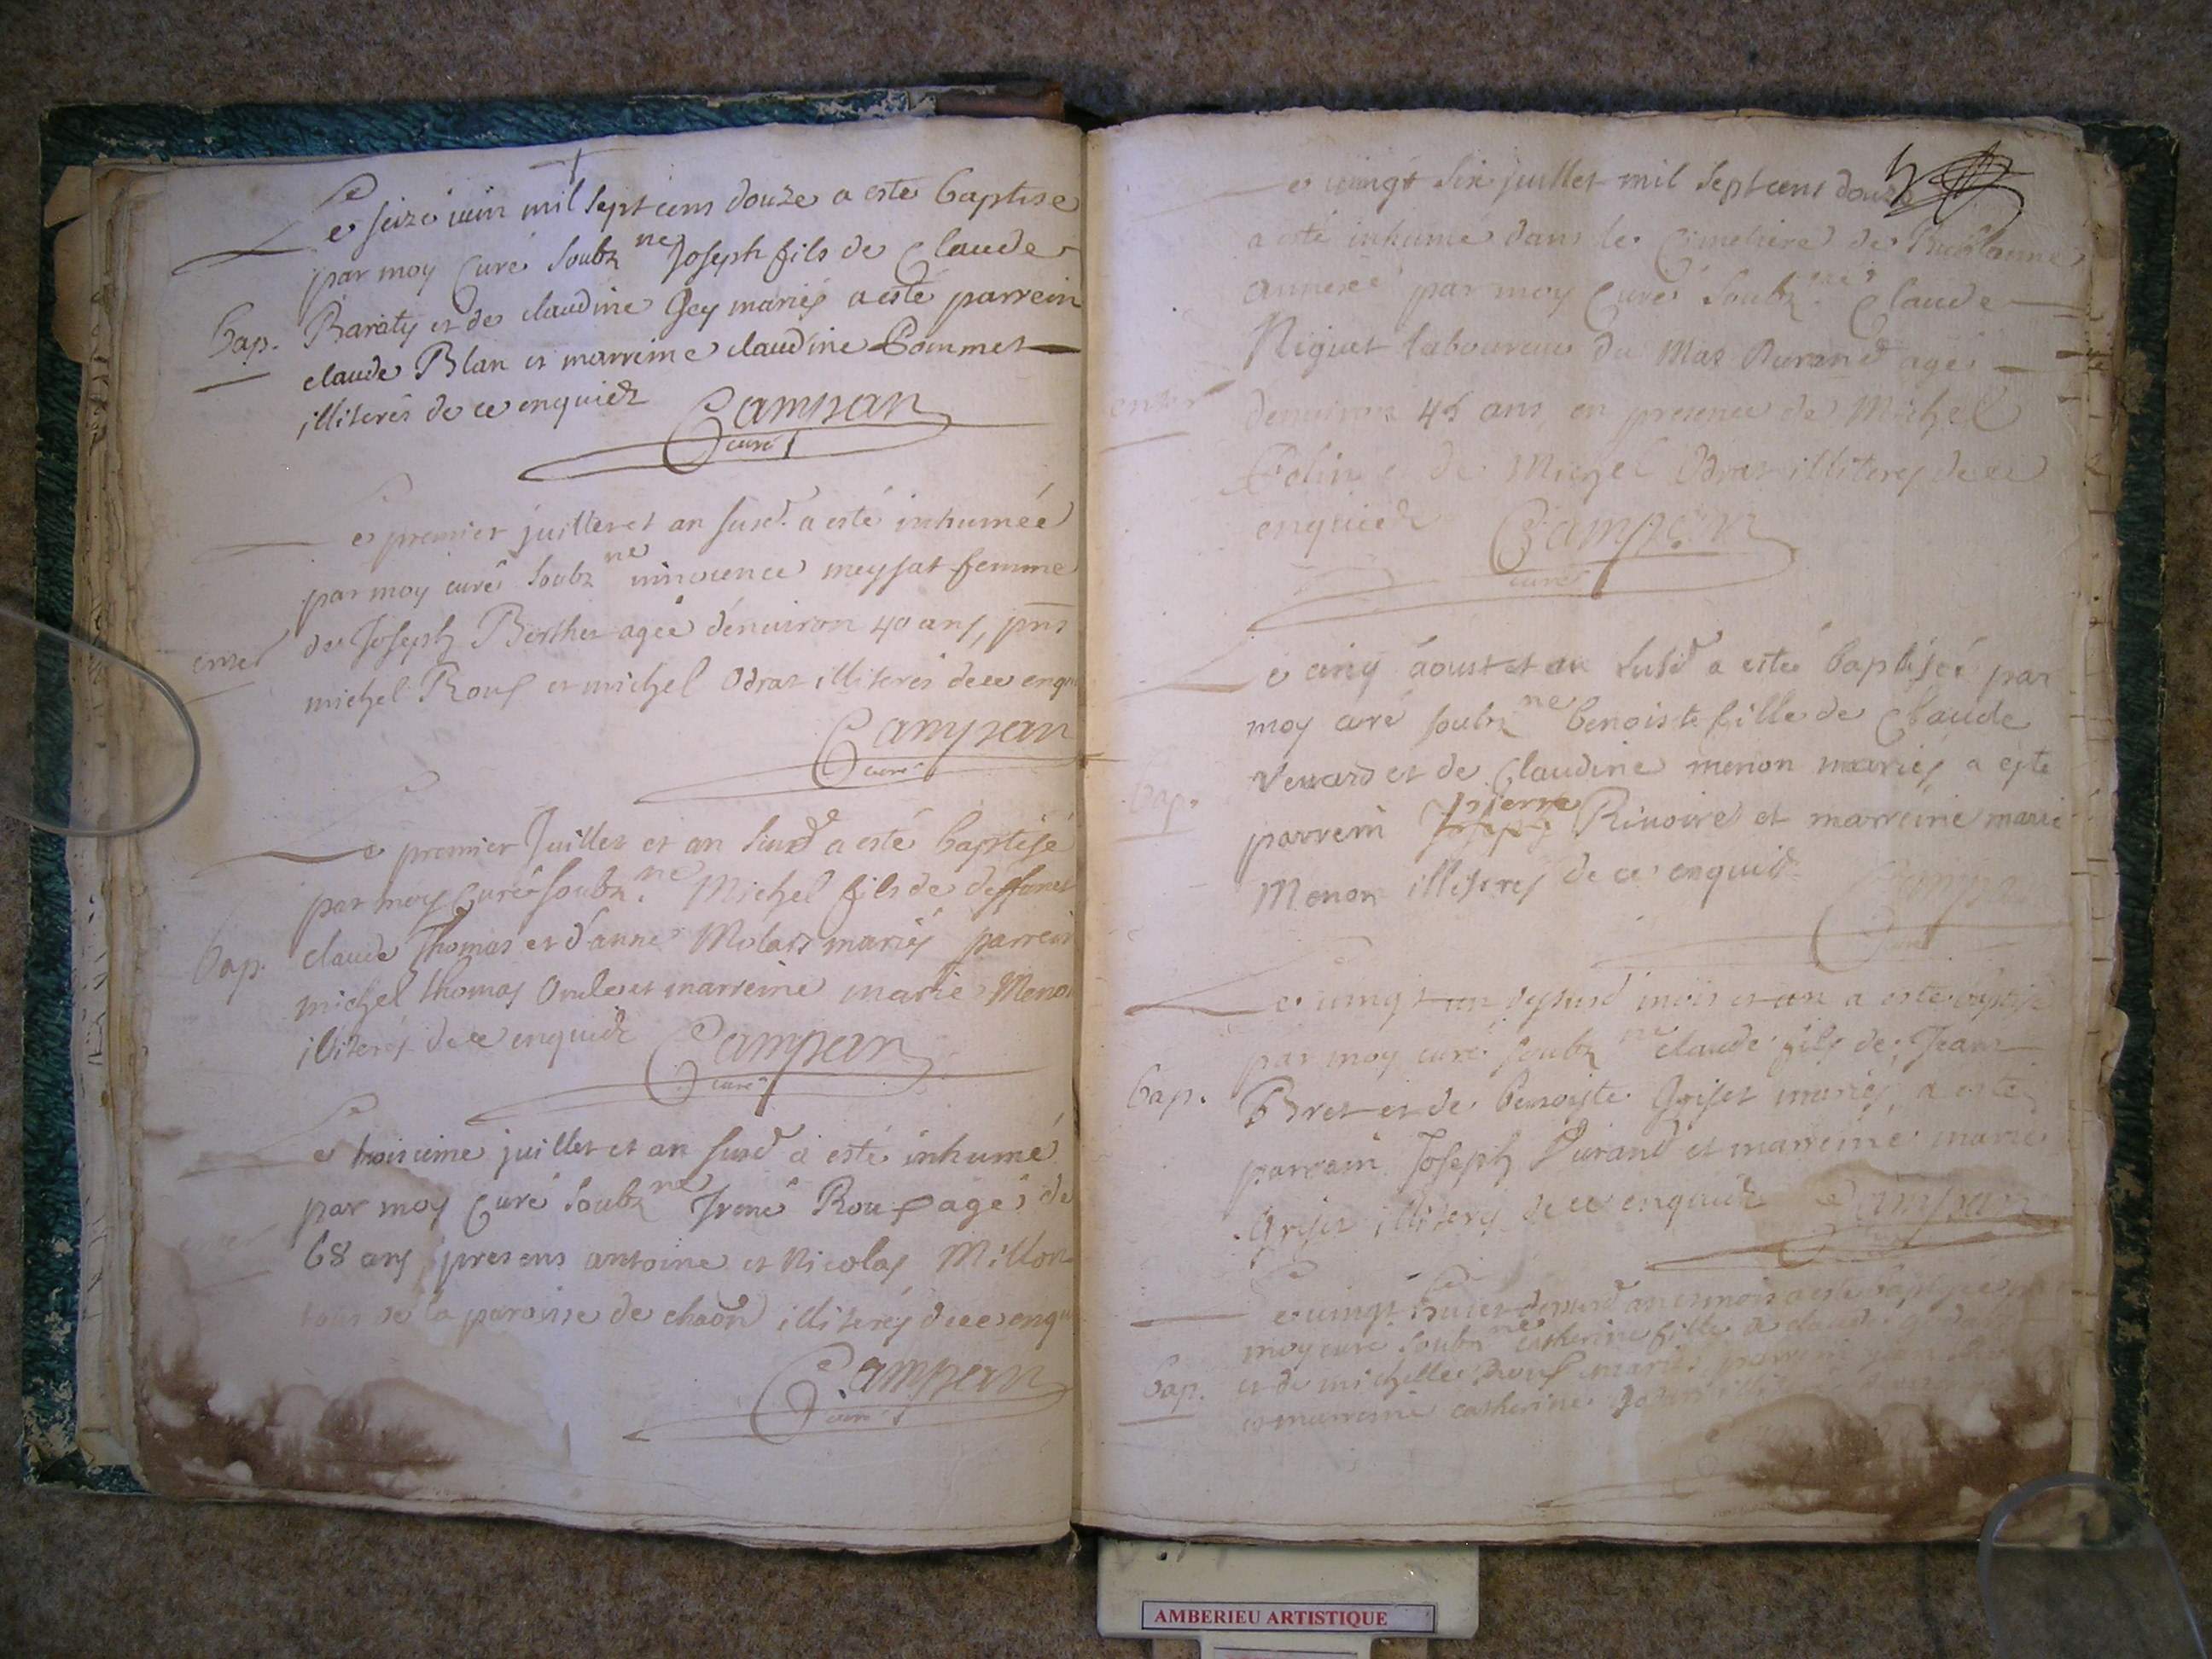 Le seize iuin mil sept cens douze a esté baptisé
par moy Curé soubz.ne Joseph fils de Claude
Bap. Baraty et de claudine Gey mariés a esté parrein
claude Blan et marreine claudine Pommet
illiterés de ce enquidz Campan
curé
Le premier juillet et an susd. a esté inhumée
par moy curé soubz.ne innocence meysat femme
enter de Joseph Berthet agée d'enuiron 40 ans, pns
michel Rouf et michel Odras illiterés de ce enqu
Campan
curé
Le premier Juillet et an susd a esté baptisé
par moy Curé soubz.ne Michel fils de deffunct
Bap. claude Thomas et d'anne Molard mariés parrein
michel thomas Oncle et marreine marie Menon
illiterés de ce enquidz Campan
curé
Le troisieme juillet et an susd a esté inhumé
par moy Curé soubz.ne Irené Rouf agé de
68 ans presens antoine et Nicolas Millon
tous de la paroisse de illiterés de ce enqu
Campan
curé
Le vingt six juillet mil sept cens douze
a esté inhumé dans le Cimetiere de
annexe par moy Curé soubz.né Claude
Niguet laboureur du Mas Durand agé
enter d'enuiron 45 ans en presence de Michel
Folin et de Michel Odras illiterés de ce
enquidz Campan
curé
Le cinq aoust et an susd a esté baptisée par
moy curé soubz.ne benoiste fille de Claude
Bap. Venard et de Claudine menon mariés a esté
parrein pierre Riuoire et marreine marie
Menon illiterés de ce enquid Campan
curé
Le vingt un desusd mois et an a esté baptisé
par moy curé soubz.ne claude fils de Jean
Bap. Bret et de benoiste Griset mariés, a esté
parrein Joseph Durand et marreine marie
Griset illiterés de ce enquidz Campan
Le vingt huict desusd an et mois a esté baptisée par
moy curé soubz.ne catherine fille de claude
Bap. et de michelle Rouf mariés parrein
et marreine catherine
AMBERIEU ARTISTIQUE